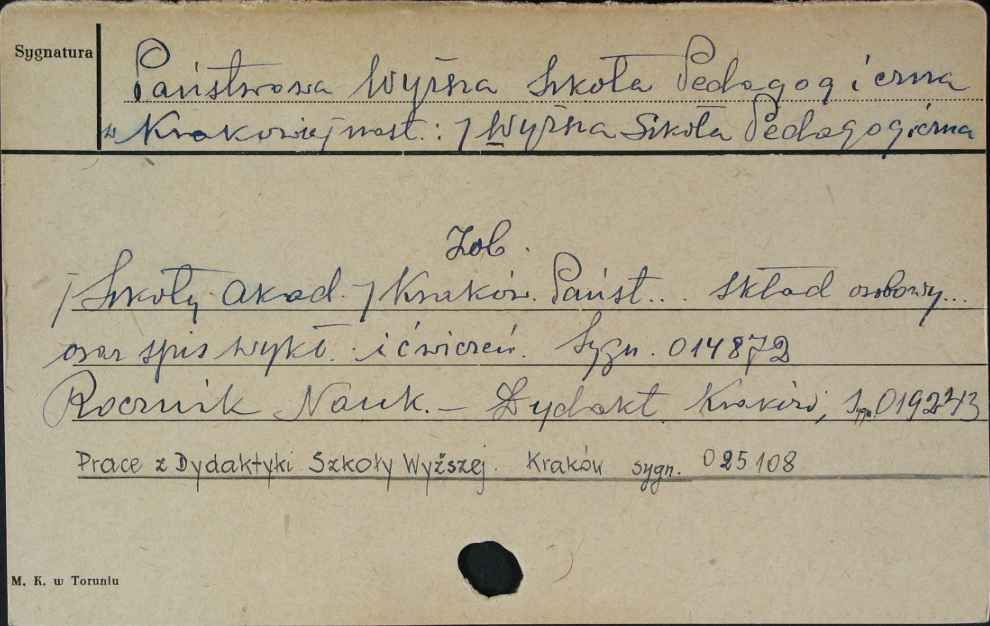 Sygnatura
Państwowa Wyższa Szkoła Pedagogiczna
w Krakowie, nast.: / Wyższa Szkoła Pedagogiczna
Zob.
/ Szkoły akad. / Kraków. Państ... Skład osobowy...
oraz spis wykł. i ćwiczeń. Sygn. 014872
Rocznik Nauk. – Dydakt. Kraków, Sygn. 019243
Prace z Dydaktyki Szkoły Wyższej. Kraków sygn. 025108
M. K. w Toruniu